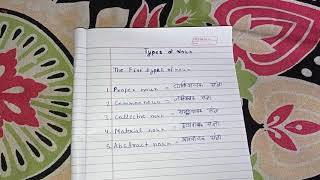 Types of Noun
The Five types of noun
1. Proper noun - व्यक्तिवाचक संज्ञा
2. Common noun - जातिवाचक संज्ञा
3. Collective noun - समूहवाचक संज्ञा
4. Material noun - द्रव्यवाचक संज्ञा
5. Abstract noun - भाववाचक संज्ञा